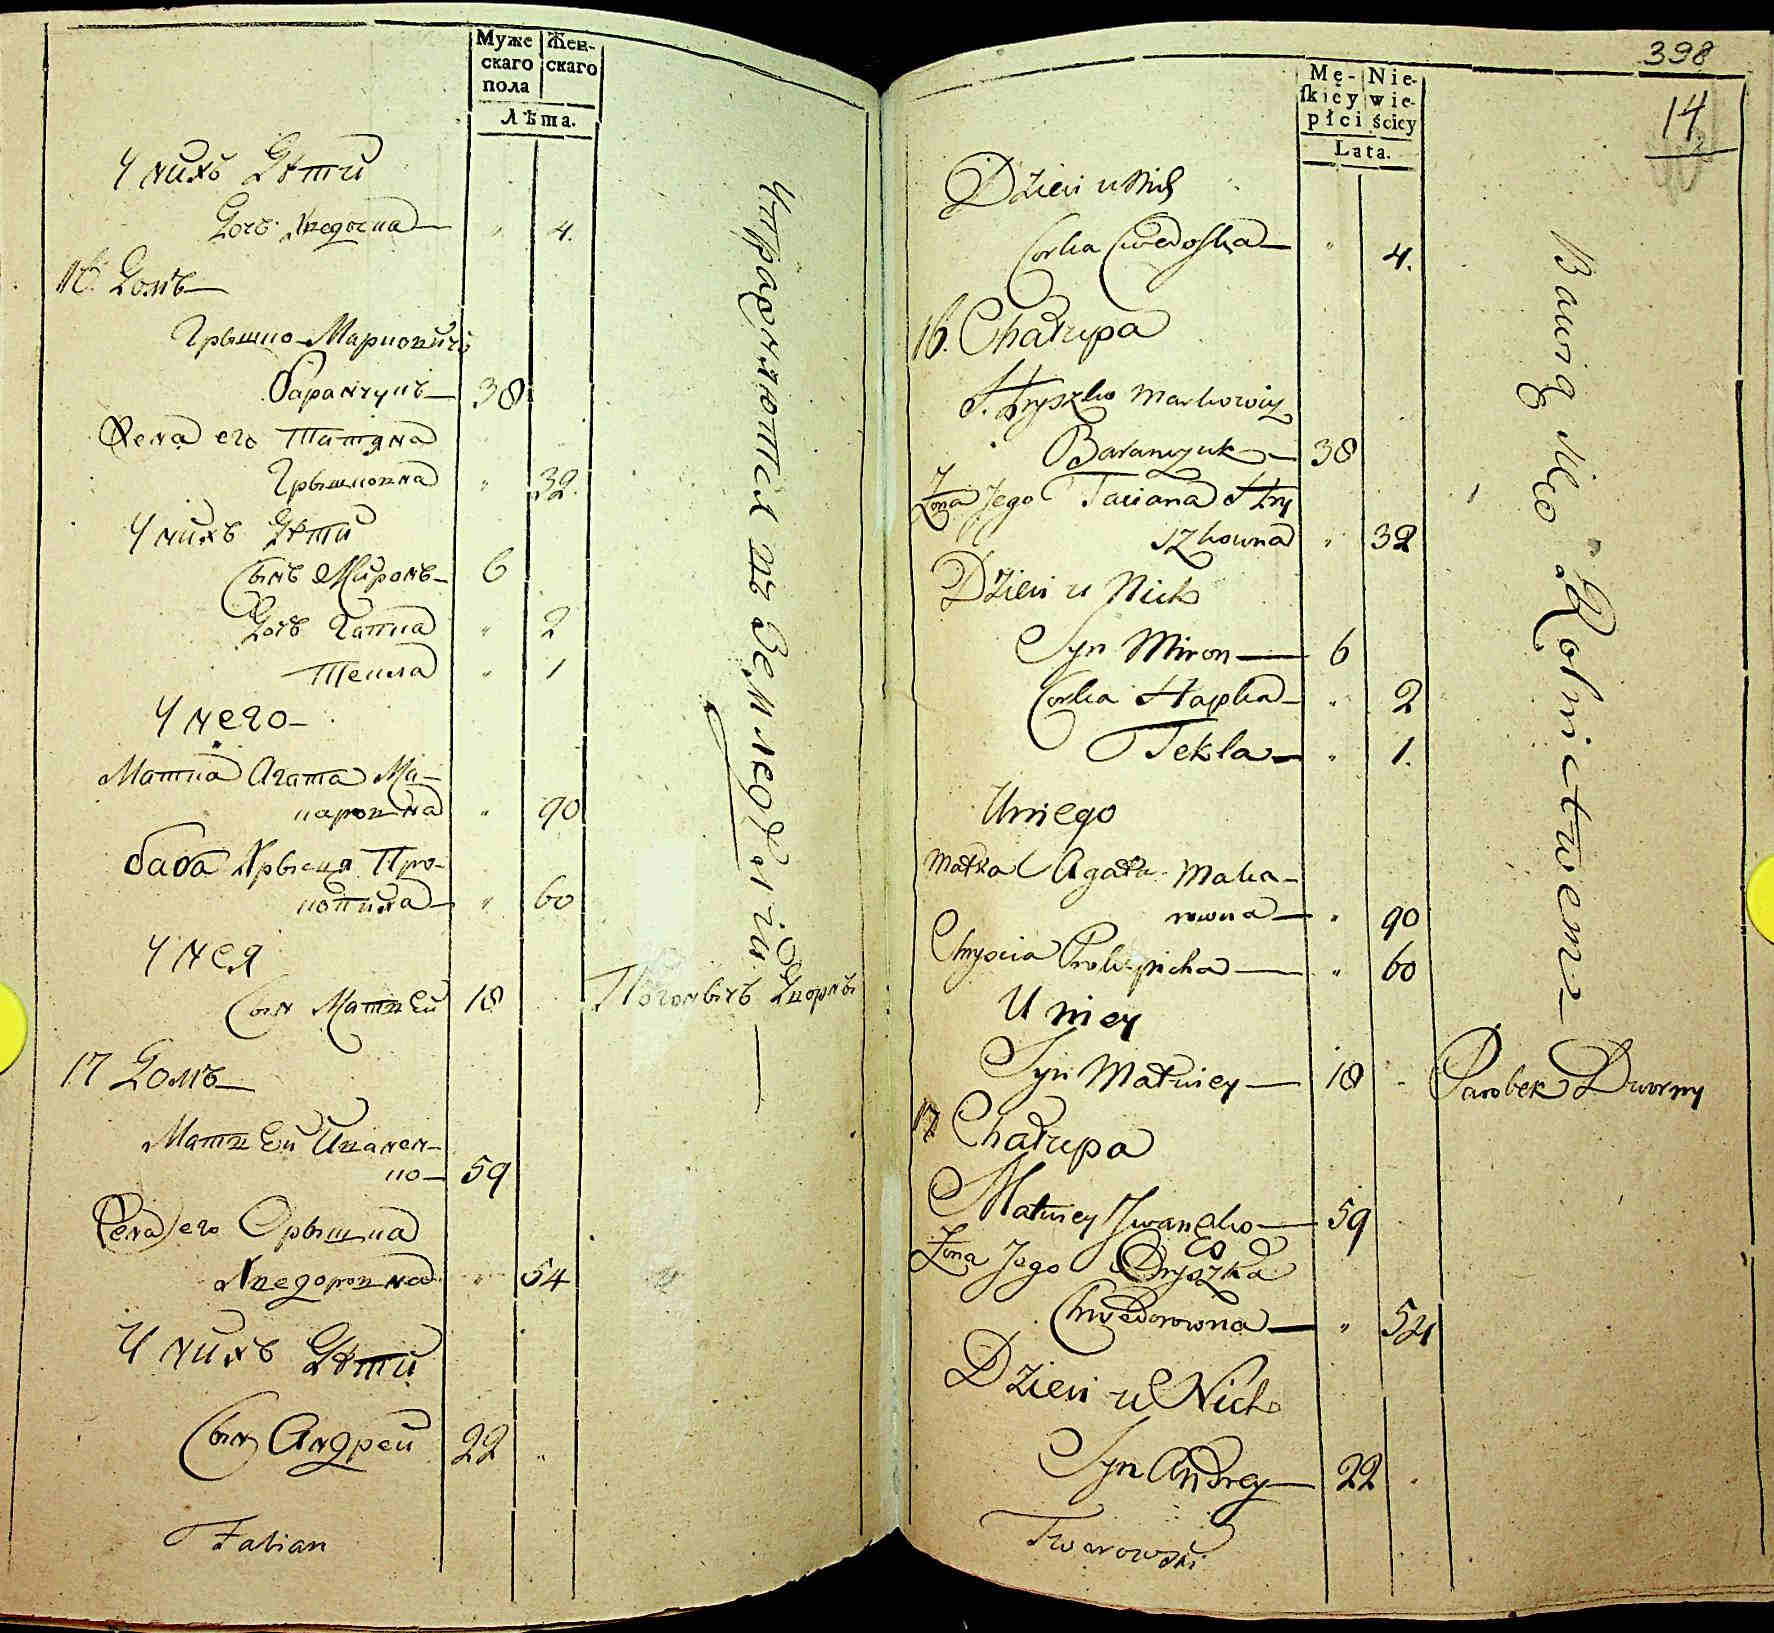 Муже Жен-
скаго скаго
пола
Лѣта.
У нихъ Дѣти
Дочь Хведоска — " 4.
16. Домъ —
Грышко Марковичъ
Баранчукъ — 38
Жена его Татяна
Грышковна " 32.
У нихъ Дѣти
Сынъ Миронъ — 6
Дочь Гапка " 2
Текла " 1
У него —
Матка Агата Ма-
каровна " 90
баба Хрысця Про-
копиха — " 60
У нея
Сын Матвѣй 18
17 Домъ —
Матвѣй Иванен-
ко — 59
Жена его Орышка
Хведоровна " 54
У нихъ Дѣти
Сын Андрей 22 "
Fabian
Упражняются въ Земледѣліи
Дворный
398
14
Mę- Nie-
skiey wie-
płci ścicy
Lata.
Dzieci u Nich
Corka Chwedoska — " 4.
16. Chałupa
Hryszko Markowicz
Baranczuk — 38
Żona Jego Taciana Hry
szkowna " 32
Dzieci u Nich
Syn Miron — 6
Corka Hapka — " 2
Tekla — " 1.
U niego
Matka Agata Maka-
rowna — " 90
Chryscia Prokopicha — " 60
U niey
Syn Matwiey — 18
17 Chałupa
Matwiey Iwanenko — 59
Żona Jego Oryszka
Chwedorowna — " 54
Dzieci u Nich
Syn Andrey — 22 "
Tworowski
Bawią się Rolnictwem —
Parobek Dworny